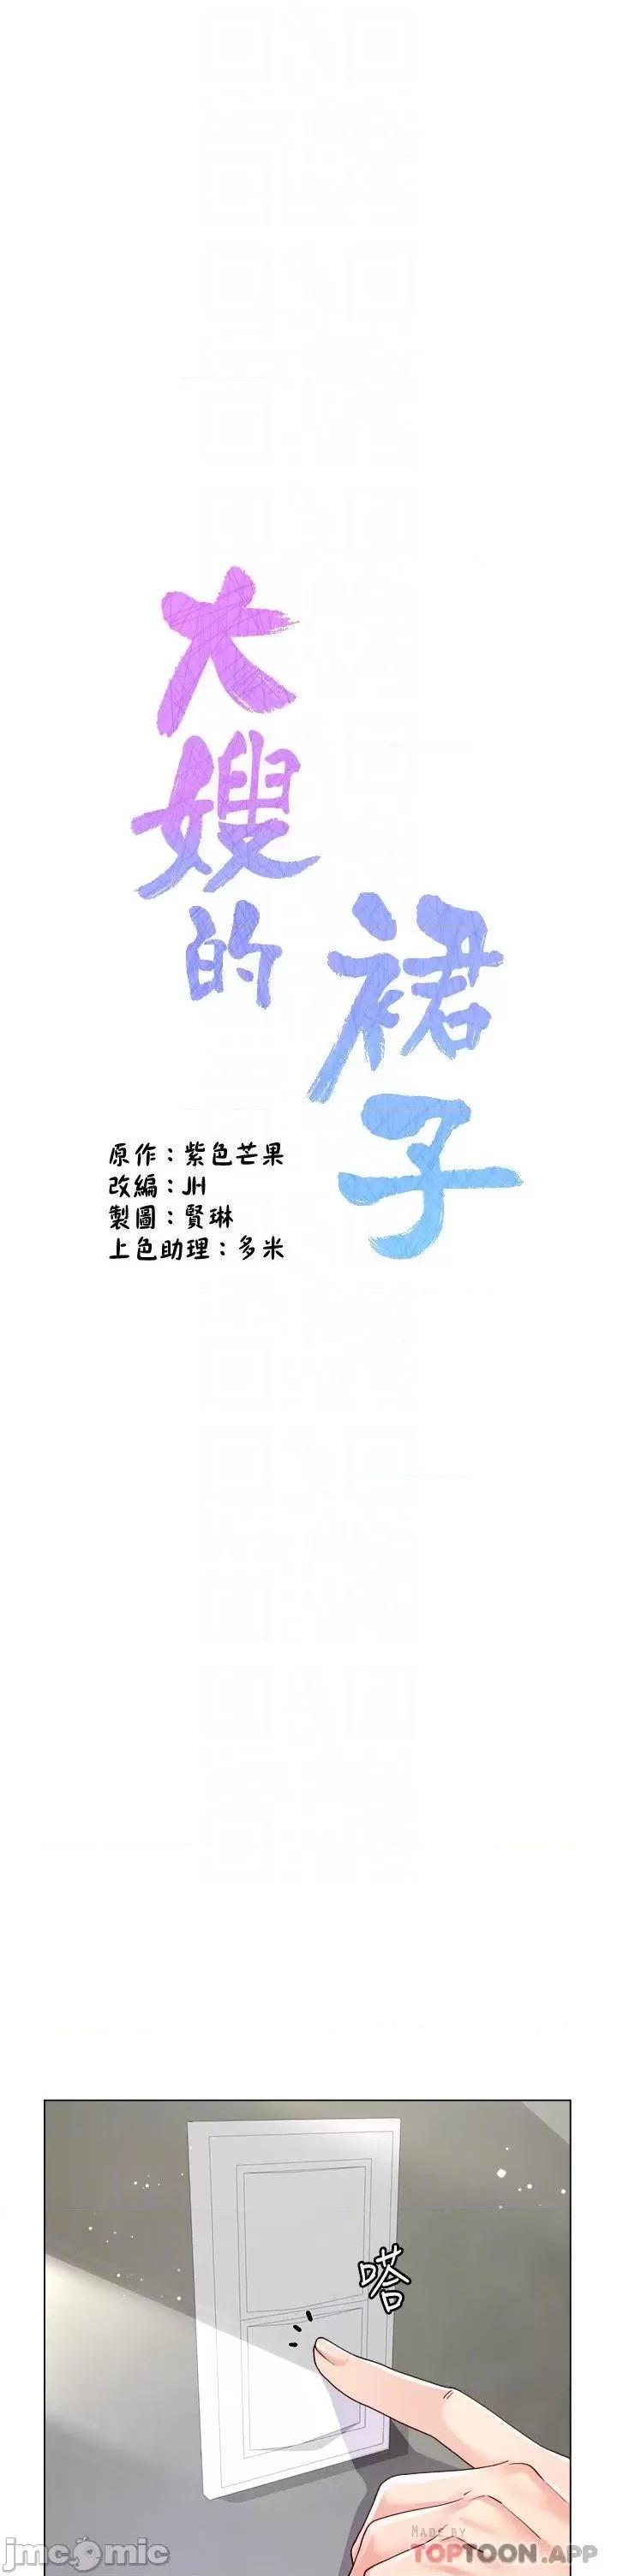 大嫂的
裙子
原作：紫色芒果
改編：JH
製圖：賢琳
上色助理：多米
嗒
MADE BY
TOPTOON.APP
jmcomic